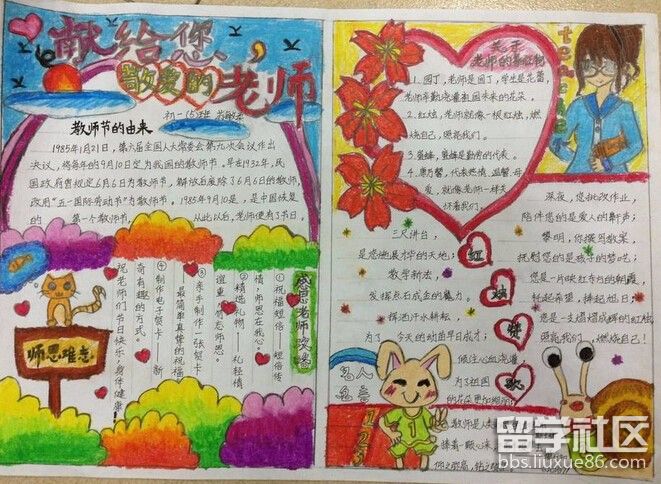 献给您,
敬爱的老师
初一(5)班
教师节的由来
1985年1月21日,第六届全国人大常委会第九次会议作出
决议,将每年的9月10日定为我国的教师节。早在1932年,民
国政府曾规定6月6日为教师节,解放后废除了6月6日的教师节,
改用“五一国际劳动节”为教师节。1985年9月10日,是中国恢复
的第一个教师节。从此以后,老师便有了节日。
感恩老师
①祝福短信——短信传
情,师恩在我心。
②精选礼物 礼轻情
谊重
③亲手制作一张贺卡——
最简单真挚的祝福
④制作电子贺卡——新
奇有趣的方式。
祝老师们节日快乐,身体健康!
师恩难忘
关于
老师的
teacher
1.园丁,老师是园丁,学生是花蕾,
老师辛勤浇灌祖国未来的花朵。
2.红烛,老师就像一根红烛,燃
烧自己,照亮我们。
3.蜜蜂,蜜蜂是勤劳的代表。
4.康乃馨,代表热情、温馨、母
爱,就像老师一样关
怀着我们。
红
烛
颂
歌
三尺讲台,
是您施展才华的天地;
教学新法,
发挥点石成金的魔力。
挥洒汗水耕耘,
为了今天的幼苗早日成才;
倾注心血浇灌
为了祖国
的花朵更加绚丽
深夜,您批改作业,
陪伴您的是爱人的鼾声;
黎明,你撰写教案,
抚慰您的是孩子的梦呓;
您是一片映红东方的朝霞,
托起希望,捧起旭日;
您是一支熠熠成辉的红烛,
照亮我们,燃烧自己!
名人
名言
1
2
3
留学社区
bbs.liuxue86.com